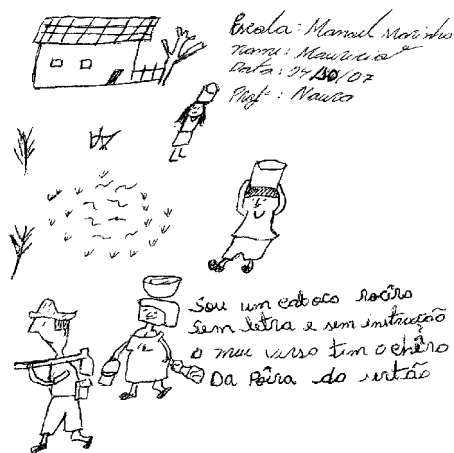 Escola: Manoel Marinho
nome: Mauricio
Data: 04/10/07
Profº: Mauro
Sou um caboco rocêro
Sem letra e sem instrução
O meu verso tem o chêro
Da Poêra do sertão